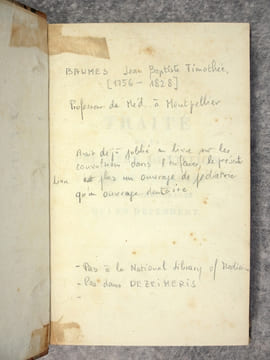 BAUMES Jean Baptiste Timothée,
[1756 - 1828]
Professeur de Med. à Montpellier
TRAITÉ
Avait dejà publié un livre sur les
convulsions dans l'enfance, le présent
livre est plus un ouvrage de pediatrie
qu'un ouvrage dentaire.
DÉPENDENT
- Pas à la National Library of Medicine
- Pas dans DEZEIMERIS
-